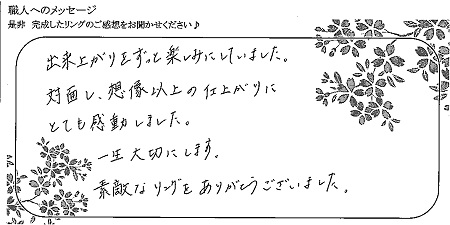 職人へのメッセージ
是非 完成したリングのご感想をお聞かせください♪
出来上がりをずっと楽しみにしていました。
対面し、想像以上の仕上がりに
とても感動しました。
一生大切にします。
素敵なリングをありがとうございました。